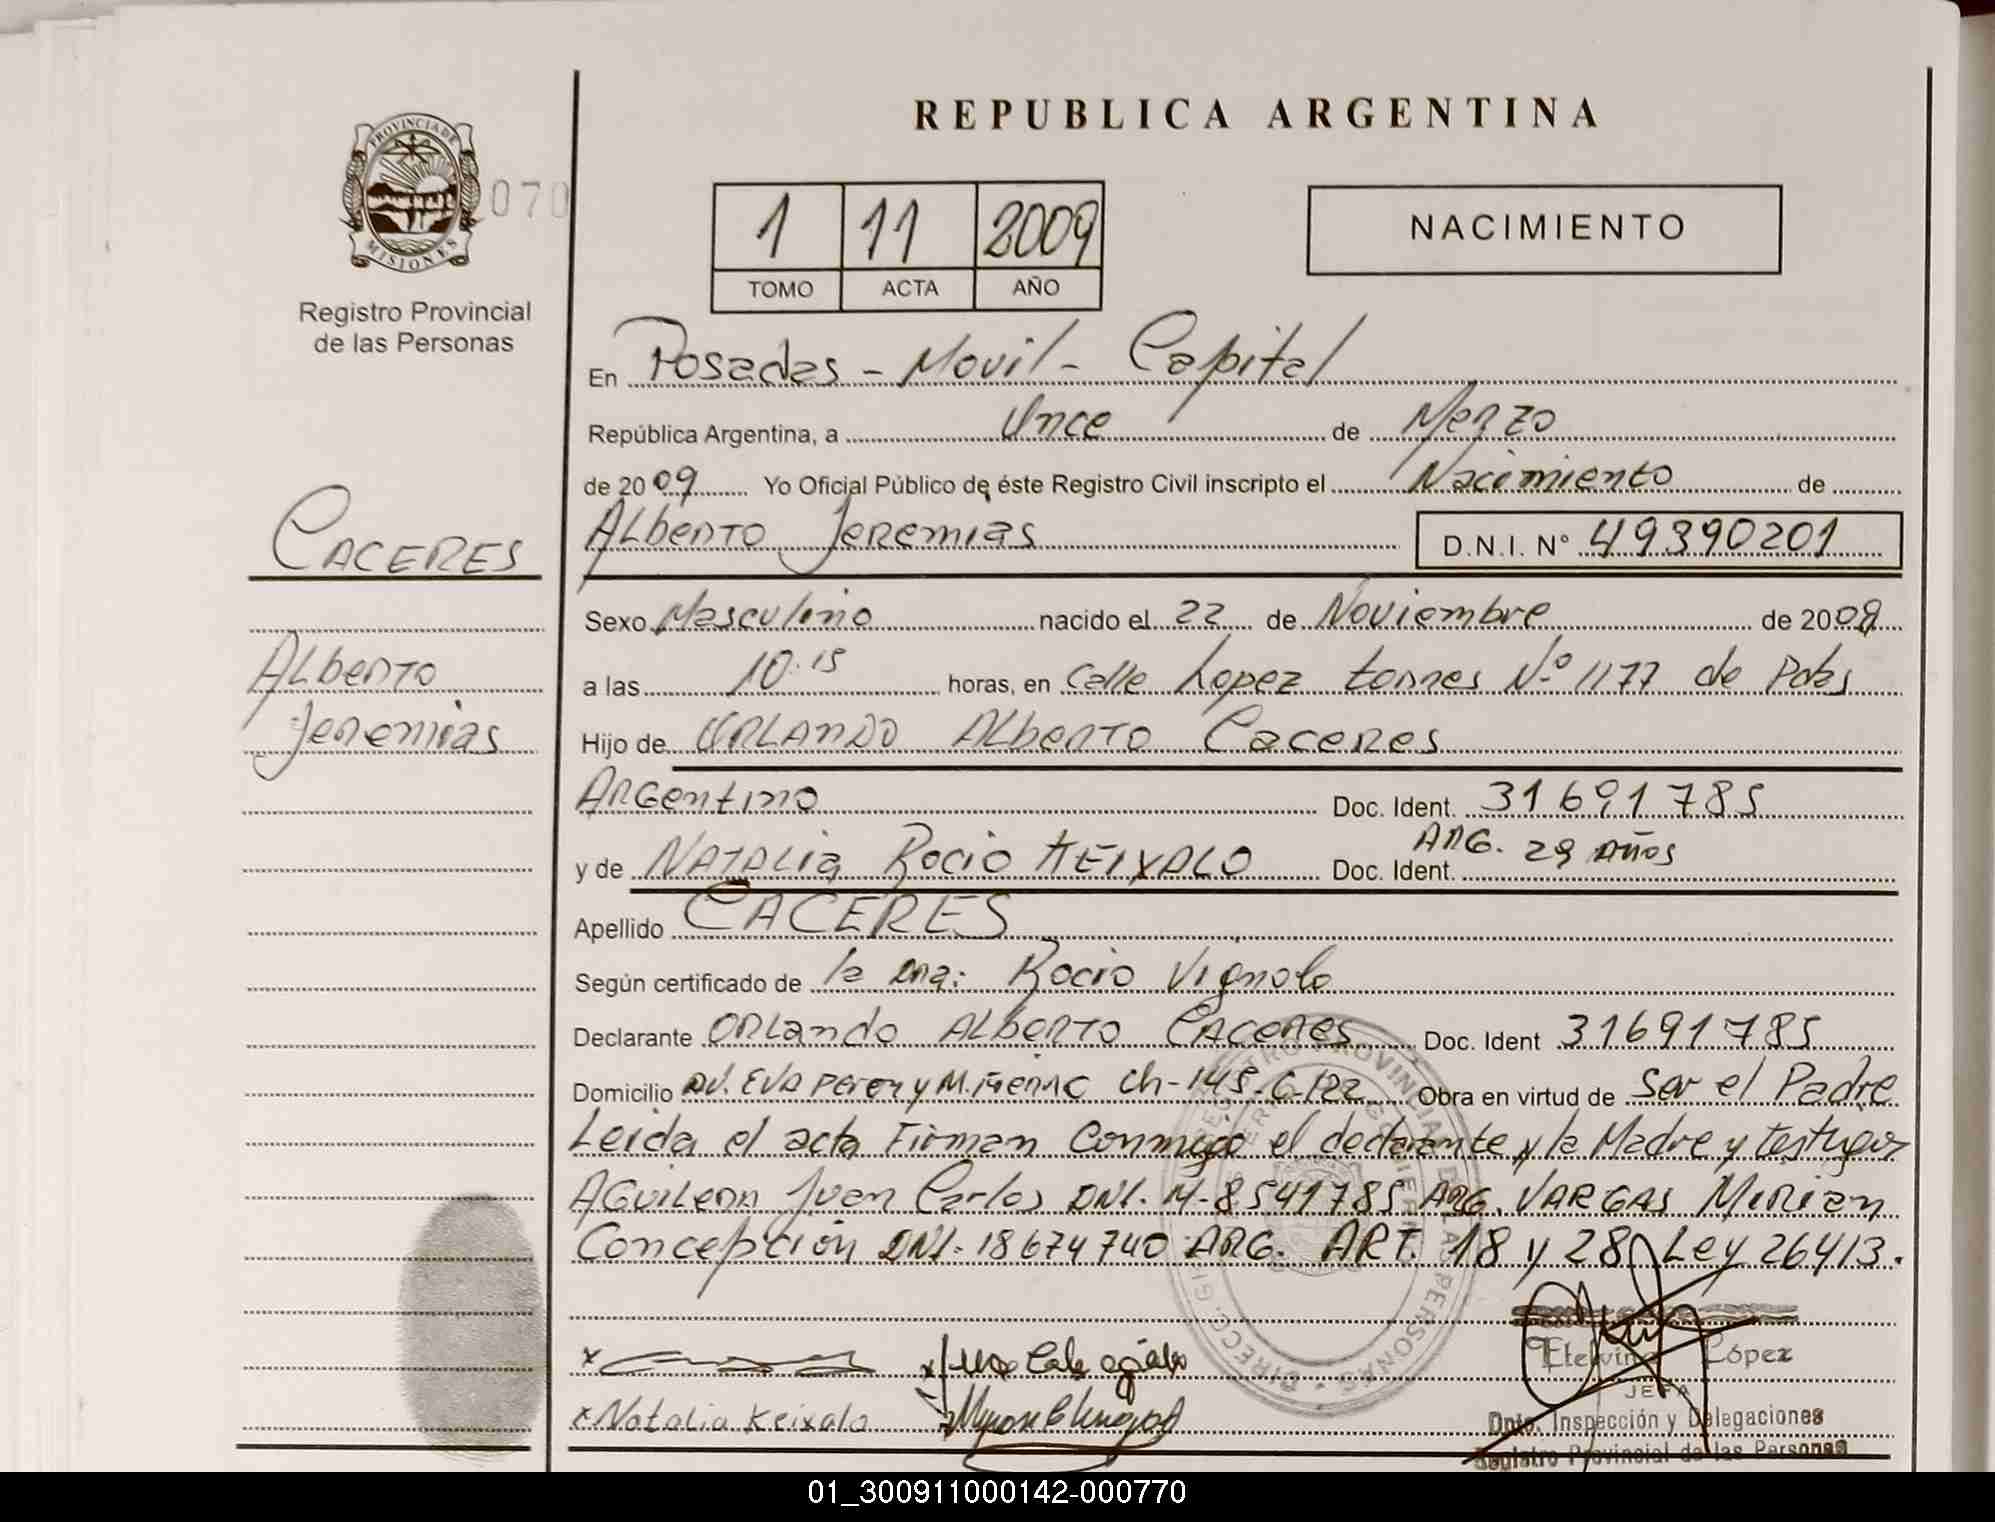 REPUBLICA ARGENTINA
PROVINCIA DE MISIONES
070
Registro Provincial
de las Personas
1 11 2009
TOMO ACTA AÑO
NACIMIENTO
En Posadas - Movil - Capital
República Argentina, a Once de Marzo
de 2009 Yo Oficial Público de éste Registro Civil inscripto el Nacimiento de
Alberto Jeremias D.N.I. Nº 49390201
CACERES
Alberto
Jeremias
Sexo Masculino nacido el 22 de Noviembre de 2008
a las 10:15 horas, en Calle Lopez torres Nº 1177 de Pdas
Hijo de ORLANDO Alberto Caceres
Argentino Doc. Ident. 31691785
y de NATALIA Rocio KEIXALO Doc. Ident. ARG. 29 AÑOS
Apellido CACERES
Según certificado de la Dra: Rocio Vignolo
Declarante Orlando Alberto CACERES Doc. Ident 31691785
Domicilio AV. EVA Peron y M. Ch-145-C-122 Obra en virtud de Ser el Padre
Leida el acta Firman Conmigo el declarante y la Madre y testigos
Aguilera Juan Carlos DNI. M-8541785 ARG. VARGAS Mirian
Concepción DNI. 18674740 ARG. ART. 18 y 28 Ley 26413.
Etelvina López
JEFA
Dpto. Inspección y Delegaciones
Registro Provincial de las Personas
x Natalia Keixalo
01_300911000142-000770